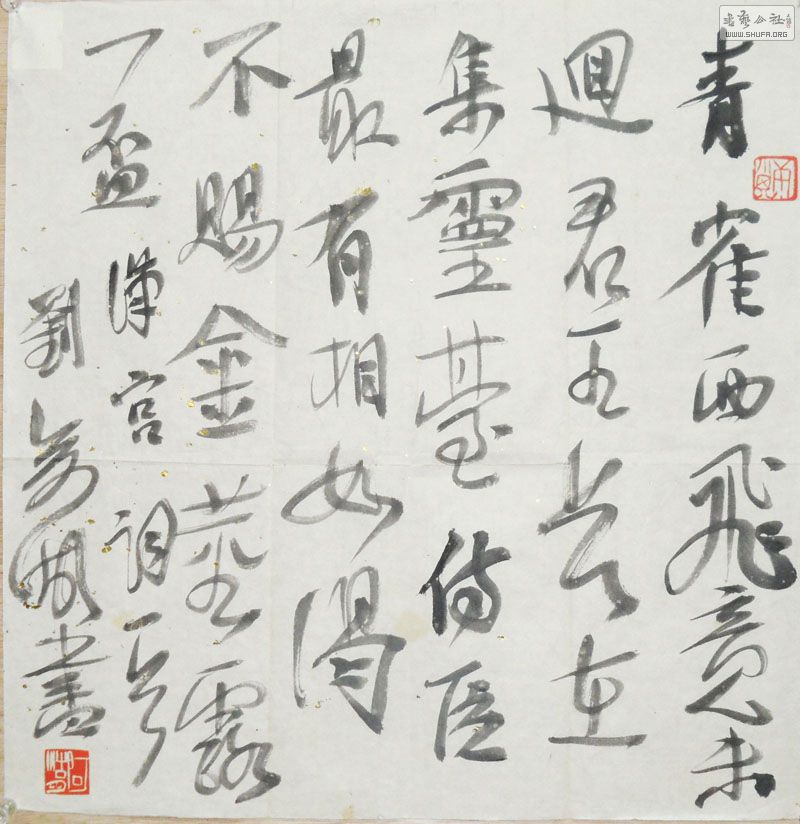 書藝公社
WWW.SHUFA.ORG
青雀西飛竟未
迴君王長在
集靈臺侍臣
最有相如渴
不賜金莖露
一盃漢宮詞一首
劉書